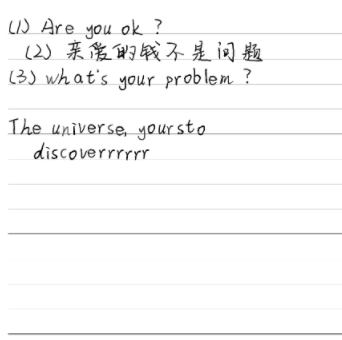 (1) Are you ok ?
(2) 亲爱的钱不是问题
(3) what's your problem ?
The universe, yoursto
discoverrrrrr